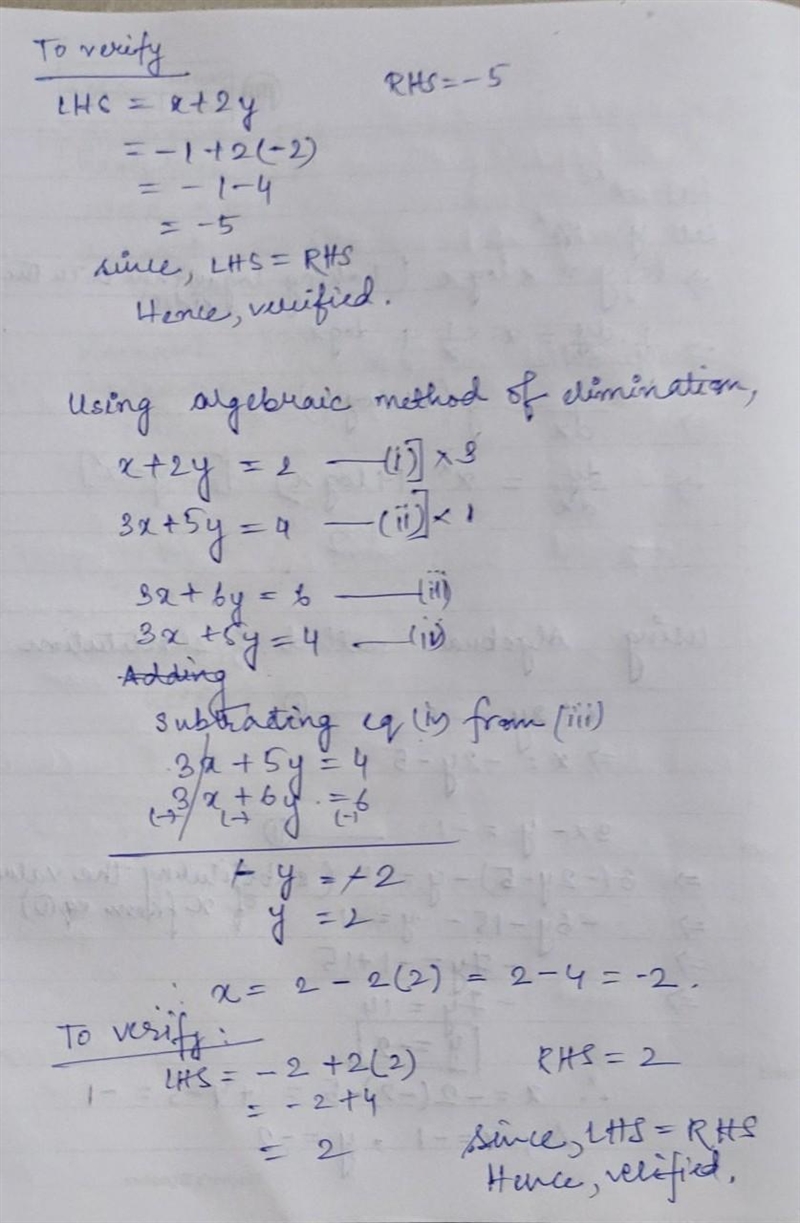 To verify
LHS = x+2y RHS = -5
= -1+2(-2)
= -1-4
= -5
since, LHS = RHS
Hence, verified.
Using algebraic method of elimination,
x+2y = 2 —(i)] × 3
3x+5y = 4 —(ii)] × 1
3x+6y = 6 —(iii)
3x+5y = 4 —(iv)
Adding
subtrating eq (iv) from (iii)
3x + 5y = 4
3x + 6y = 6
(-) (-) (-)
- y = -2
y = 2
∴ x = 2 - 2(2) = 2-4 = -2.
To verify:
LHS = -2 +2(2) RHS = 2
= -2+4
= 2 since, LHS = RHS
Hence, verified.